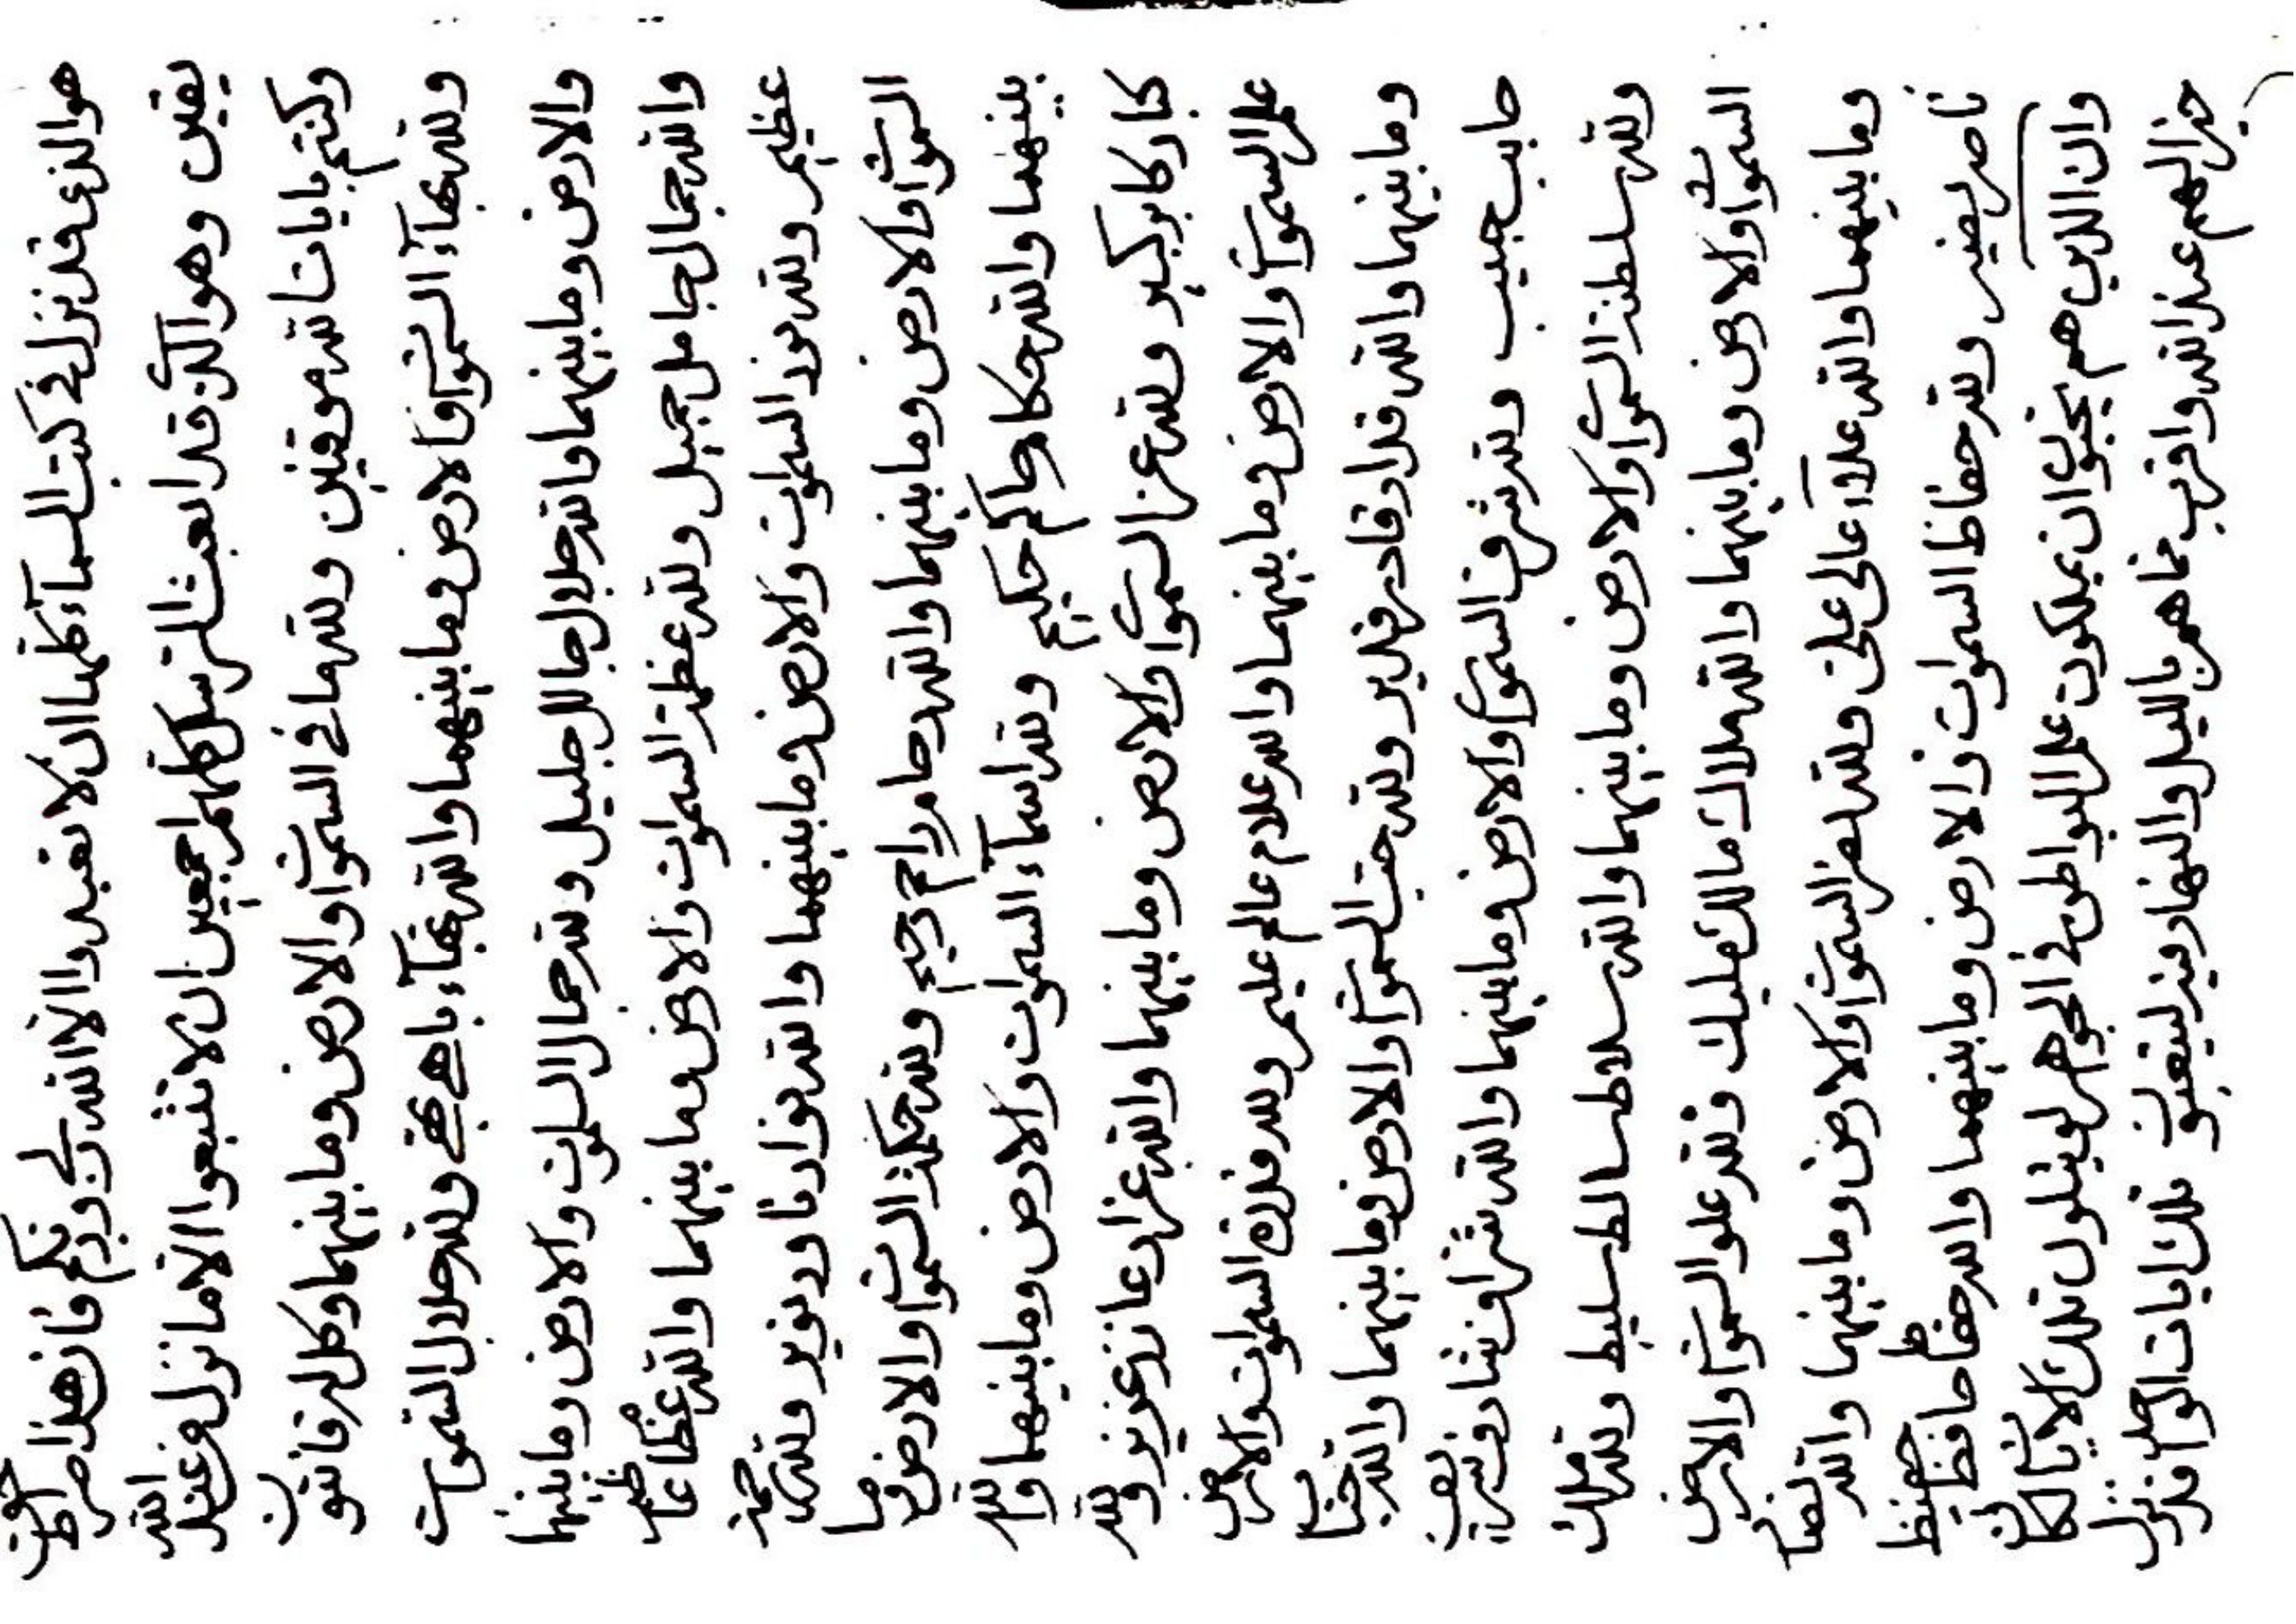 هو الذي قد نزل في كتب السماء كلها ان لا تعبدوا الا الله ربي وربكم فان هذا صراط حق
يقين وهو الذي قد ابعث الرسل كلهم اجمعين ان لا تتبعوا الا ما نزل من عند الله
وكنتم بايات الله موقنين ولله ما في السموات والارض وما بينهما وكل له قانتون
ولله بهاء السموات والارض وما بينهما والله بهاء باهي بهي ولله جلال السموات
والارض وما بينهما والله جلال جالل جليل ولله جمال السموات والارض وما بينهما
والله جمال جامل جميل ولله عظمة السموات والارض وما بينهما والله عظام عاظم
عظيم ولله نور السموات والارض وما بينهما والله نوار ناور نوير ولله رحمة
السموات والارض وما بينهما والله رحام راحم رحيم ولله حكمة السموات والارض وما
بينهما والله حكام حاكم حكيم ولله اسماء السموات والارض وما بينهما والله
كبار كابر كبير ولله عز السموات والارض وما بينهما والله عزاز عازز عزيز ولله
علم السموات والارض وما بينهما والله علام عالم عليم ولله قدرة السموات والارض
وما بينهما والله قدار قادر قدير ولله حب السموات والارض وما بينهما والله حباب
حابب حبيب ولله شرف السموات والارض وما بينهما والله شراف شارف شريف
ولله سلطنة السموات والارض وما بينهما والله سلاط سالط سليط ولله ملك
السموات والارض وما بينهما والله ملاك مالك مليك ولله علو السموات والارض
وما بينهما والله علاء عالي علي ولله نصر السموات والارض وما بينهما والله نصار
ناصر نصير ولله حفاظ السموات والارض وما بينهما والله حفاظ حافظ حفيظ
وان الذين هم يحبون ان يملكون علم البواطن في الجواهر لو يتلون تلك الايات لكان
خيرا لهم عند الله واقرب مما هم بالليل والنهار فيه ليتعبون تلك ايات قد نزل